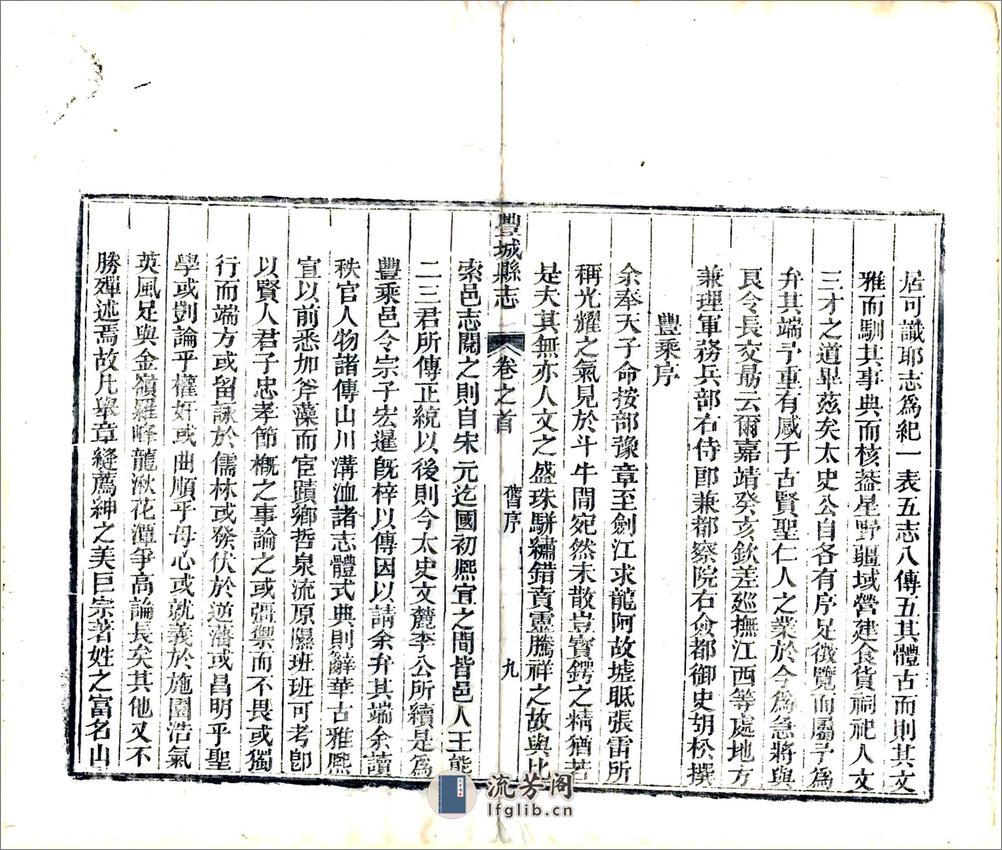 居可識耶志爲紀一表五志八傳五其體古而則其文
雅而馴其事典而核葢星野疆域營建食貨祠祀人文
三才之道畢茲矣太史公自各有序足徴覽而屬予爲
弁其端予重有感于古賢聖仁人之業於今爲急將與
艮令長交勗云爾嘉靖癸亥欽差巡撫江西等處地方
兼理軍務兵部右侍郎兼都察院右僉都御史胡松撰
豐乘序
余奉天子命按部豫章至劍江求龍阿故墟眂張雷所
稱光耀之氣見於斗牛間宛然未散豈寳鍔之精猶若
是夫其無亦人文之盛珠駢繡錯賁靈騰祥之故與比
豐城縣志
卷之首
舊序
九
索邑志閱之則自宋元迄國初熈宣之間皆邑人王熊
二三君所傳正統以後則今太史文麓李公所續是爲
豐乘邑令宗子宏暹旣梓以傳因以請余弁其端余讀
秩官人物諸傳山川溝洫諸志體式典則辭華古雅熈
宣以前悉加斧藻而宦蹟鄉哲泉流原隰班班可考卽
以賢人君子忠孝節概之事論之或彊禦而不畏或獨
行而端方或留詠於儒林或豥伏於逆藩或昌明乎聖
學或剴論乎權奸或曲順乎母心或就義於施圉浩氣
英風足與金嶺羅峰龍湫花潭爭高論長矣其他又不
勝殫述焉故凡舉章縫薦紳之美巨宗著姓之富名山
流芳阁
lfglib.cn